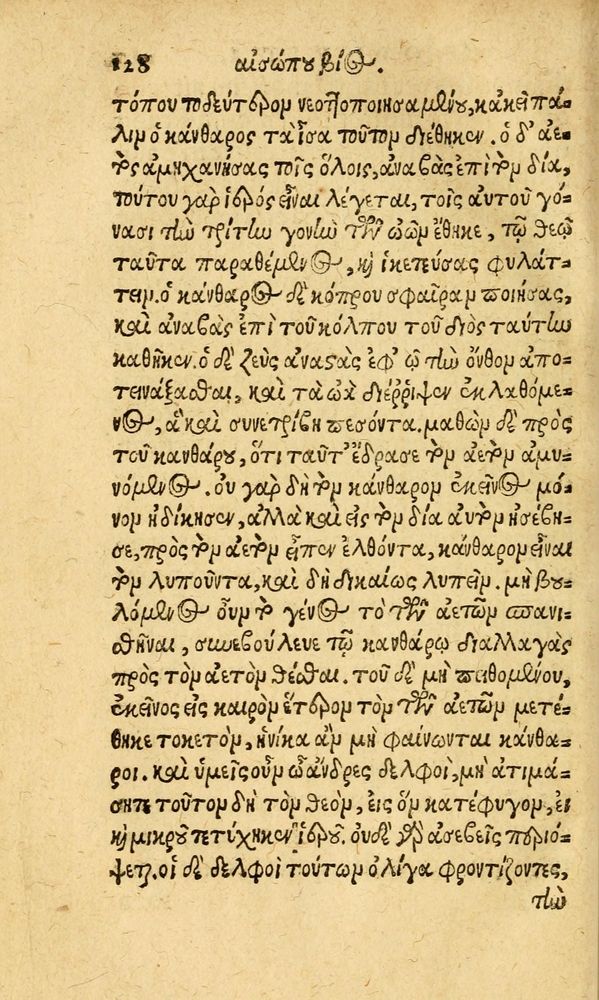 128 αἰσώπου βίος.
τόπου τὸ δεύτερον νεοττοποιησαμένου, κἀκεῖ πά-
λιν ὁ κάνθαρος τὰ ἶσα τοῦτον διέθηκεν. ὁ δ' ἀε-
τὸς ἀμηχανήσας τοῖς ὅλοις, ἀναβὰς ἐπὶ τὸν δία,
τούτου γὰρ ἱερὸς εἶναι λέγεται, τοῖς αὐτοῦ γό-
νασι τὴν τρίτην γονὴν τῶν ὠῶν ἔθηκε, τῷ θεῷ
ταῦτα παραθέμενος, καὶ ἱκετεύσας φυλάτ-
τειν. ὁ κάνθαρος δὲ κόπρου σφαῖραν ποιήσας,
καὶ ἀναβὰς ἐπὶ τοῦ κόλπου τοῦ διὸς ταύτην
καθῆκεν. ὁ δὲ ζεὺς ἀναστὰς ἐφ' ᾧ τὴν ὄνθον ἀπο-
τεινάξασθαι, καὶ τὰ ὠὰ διέρριψεν ἐκλαθόμε-
νος, ἃ καὶ συνετρίβη πεσόντα. μαθὼν δὲ πρὸς
τοῦ κανθάρου, ὅτι ταῦτ' ἔδρασε τὸν ἀετὸν ἀμυ-
νόμενος. οὐ γὰρ δὴ τὸν κάνθαρον ἐκεῖνος μό-
νον ἠδίκησεν, ἀλλὰ καὶ εἰς τὸν δία αὐτὸν ἠσέβη-
σε, πρὸς τὸν ἀετὸν εἶπεν ἐλθόντα, κάνθαρον εἶναι
τὸν λυποῦντα, καὶ δὴ δικαίως λυπεῖν. μὴ βου-
λόμενος οὖν τὸ γένος τὸ τῶν ἀετῶν σπανι-
σθῆναι, συνεβούλευε τῷ κανθάρῳ διαλλαγὰς
πρὸς τὸν ἀετὸν θέσθαι. τοῦ δὲ μὴ πειθομένου,
ἐκεῖνος εἰς καιρὸν ἕτερον τὸν τῶν ἀετῶν μετέ-
θηκε τοκετὸν, ἡνίκα ἂν μὴ φαίνωνται κάνθα-
ροι. καὶ ὑμεῖς οὖν ὦ ἄνδρες δελφοὶ, μὴ ἀτιμά-
σητε τοῦτον δὴ τὸν θεὸν, εἰς ὃν κατέφυγον, εἰ
καὶ μικροῦ τετύχηκεν ἱεροῦ. οὐδὲ γὰρ ἀσεβεῖς περιό-
ψεται. οἱ δὲ δελφοὶ τούτων ὀλίγα φροντίζοντες,
τὴν